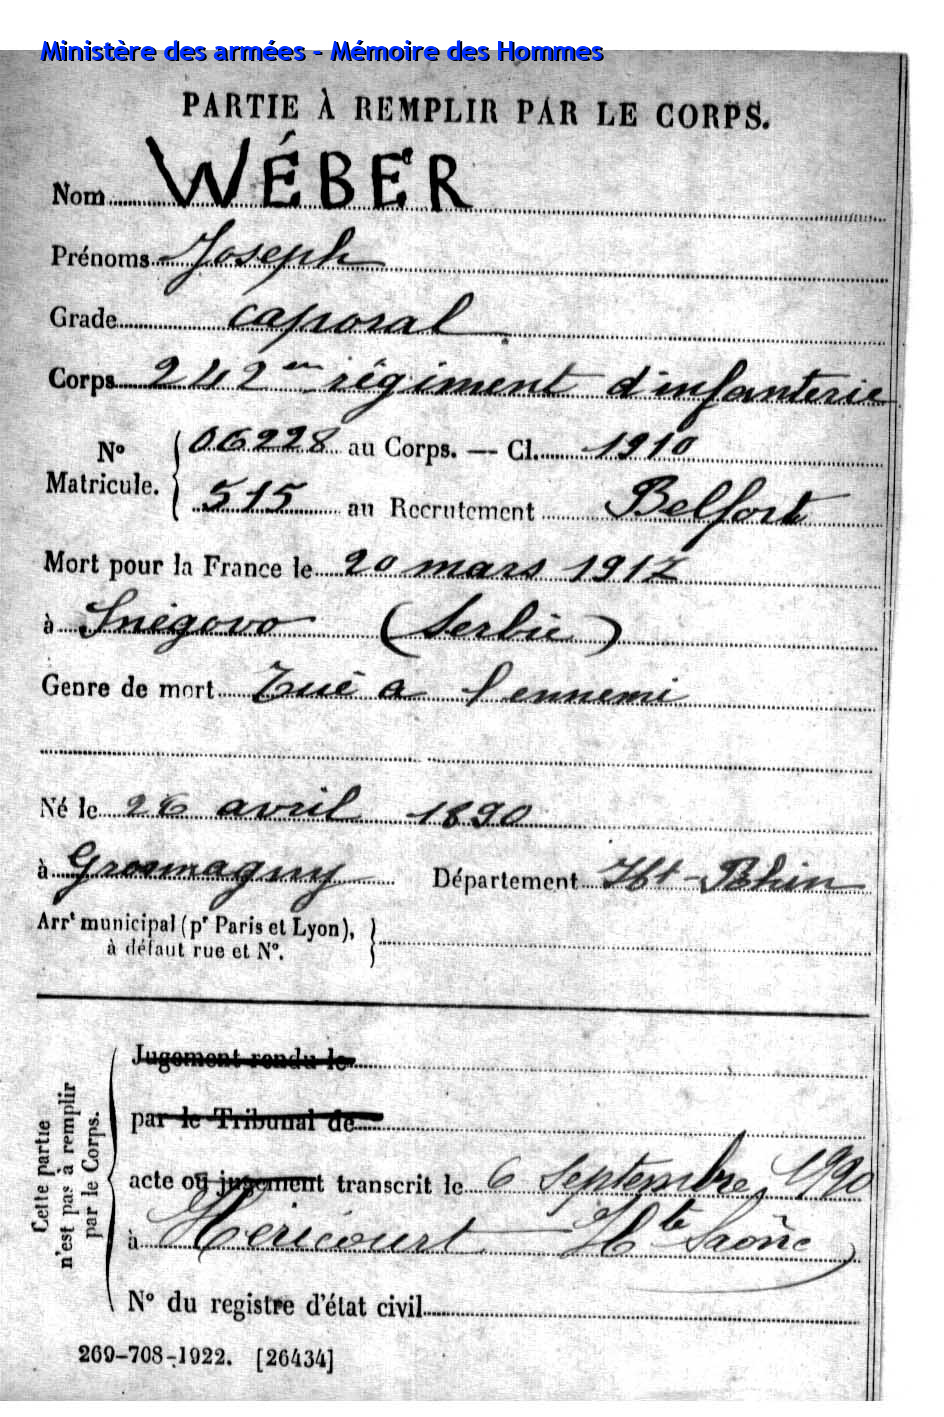 Ministère des armées - Mémoire des Hommes
PARTIE À REMPLIR PAR LE CORPS.
Nom WÉBER
Prénoms Joseph
Grade caporal
Corps 242me régiment d'infanterie
No Matricule. { 06228 au Corps. — Cl. 1910
515 au Recrutement Belfort
Mort pour la France le 20 mars 1917
à Snégovo (Serbie)
Genre de mort Tué a l'ennemi
Né le 26 avril 1890
à Grosmagny Département Ht-Rhin
Arrt municipal (pr Paris et Lyon),
à défaut rue et N°.
Cette partie
n'est pas à remplir
par le Corps.
Jugement rendu le
par le Tribunal de
acte ou jugement transcrit le 6 Septembre 1920
à Héricourt Hte Saône
N° du registre d'état civil
269-708-1922. [26434]